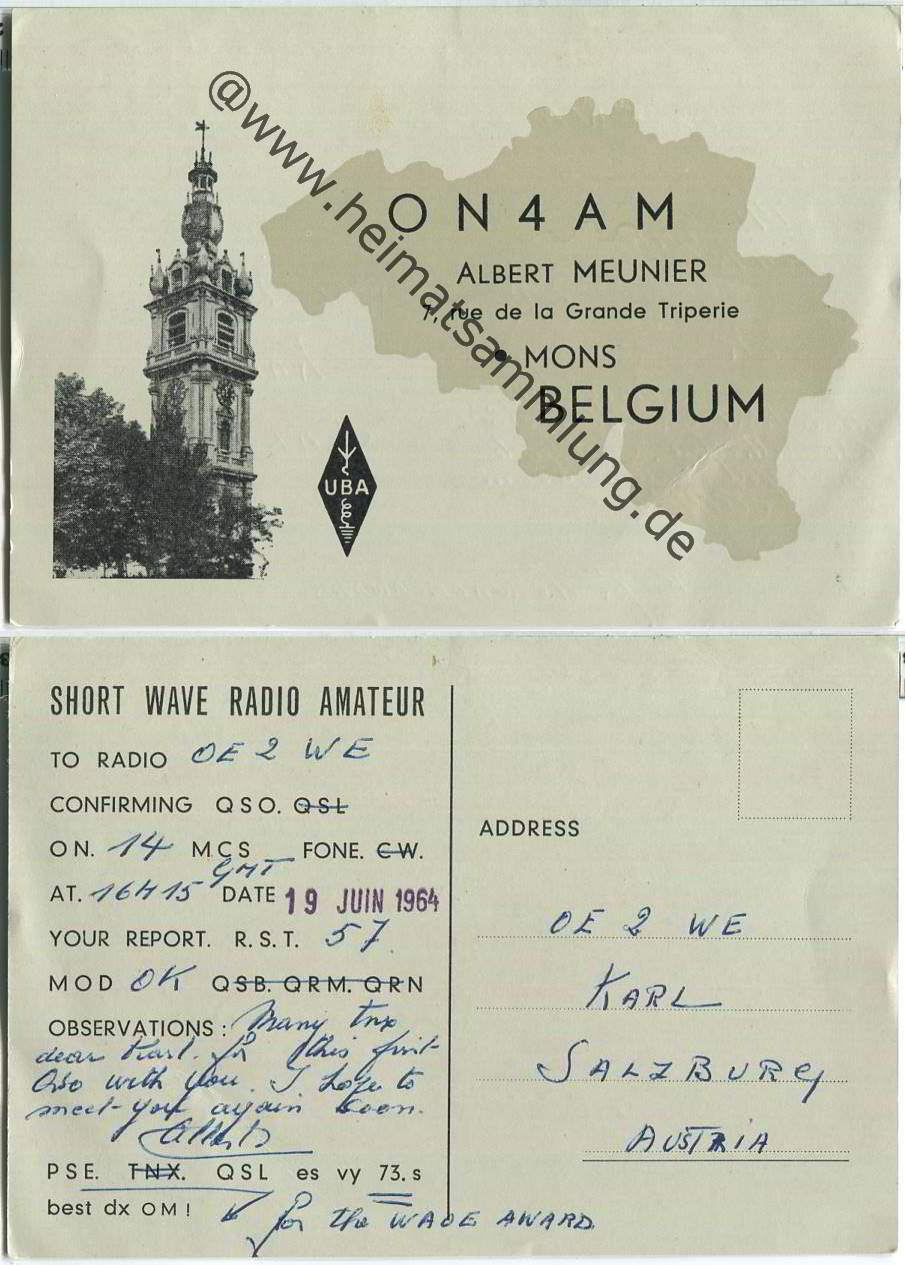 @www.heimatsammlung.de
ON4AM
ALBERT MEUNIER
rue de la Grande Triperie
MONS
BELGIUM
UBA
SHORT WAVE RADIO AMATEUR
TO RADIO OE 2 WE
CONFIRMING QSO. QSL
ON. 14 MCS FONE. CW.
GMT
AT. 16H15 DATE 19 JUIN 1964
YOUR REPORT. R.S.T. 57
MOD OK QSB. QRM. QRN
OBSERVATIONS: Many tnx
dear Karl. for this first
Qso with you. I hope to
meet you again soon.
PSE. TNX. QSL es vy 73.s
best dx OM!
for the WADE AWARD
ADDRESS
OE 2 WE
KARL
SALZBURG
AUSTRIA